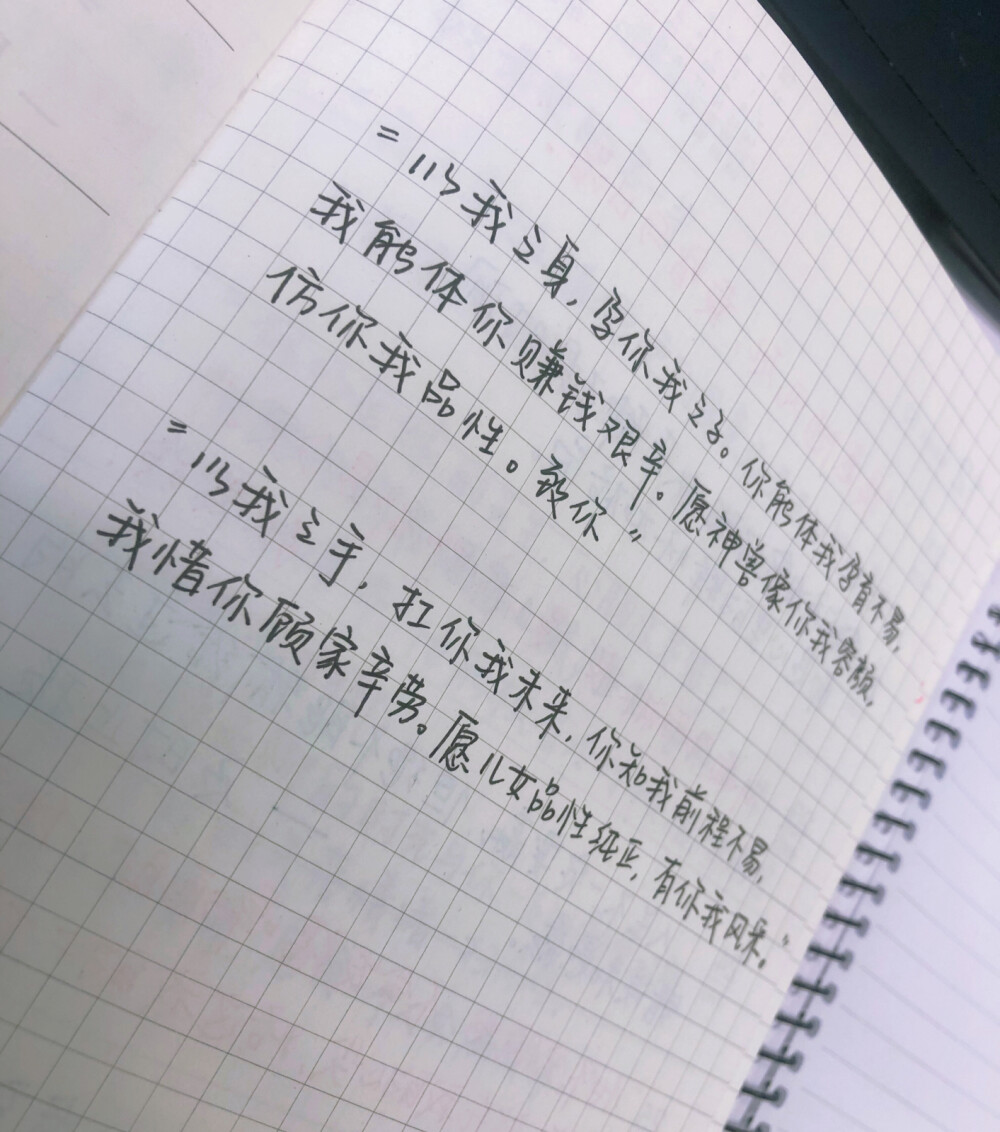 "以我之身，孕你我之子。你能体我孕育不易，
我能体你赚钱艰辛。愿神兽像你我容颜，
仿你我品性。致你"
"以我之手，扛你我未来，你知我前程不易，
我惜你顾家辛劳。愿儿女品性纯正，有你我风采。"